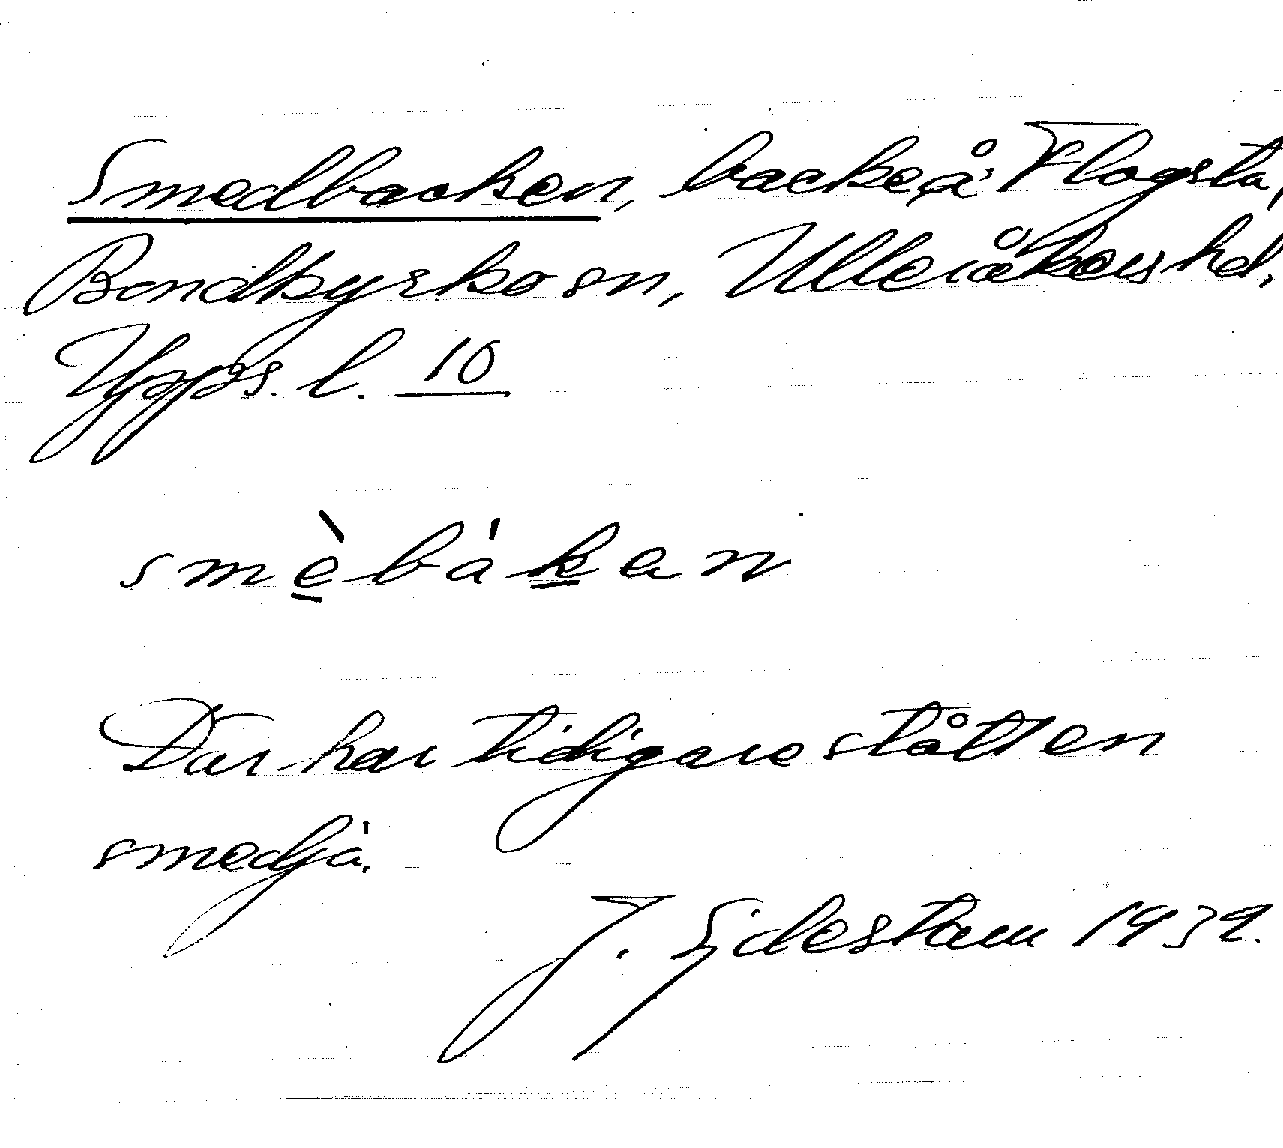 Smedbacken, backe å Flogsta,
Bondkyrko sn, Ulleråkers hd,
Upps. l. 10
smèbákan
Där har tidigare stått en
smedja.
J. Sjdestam 1932.